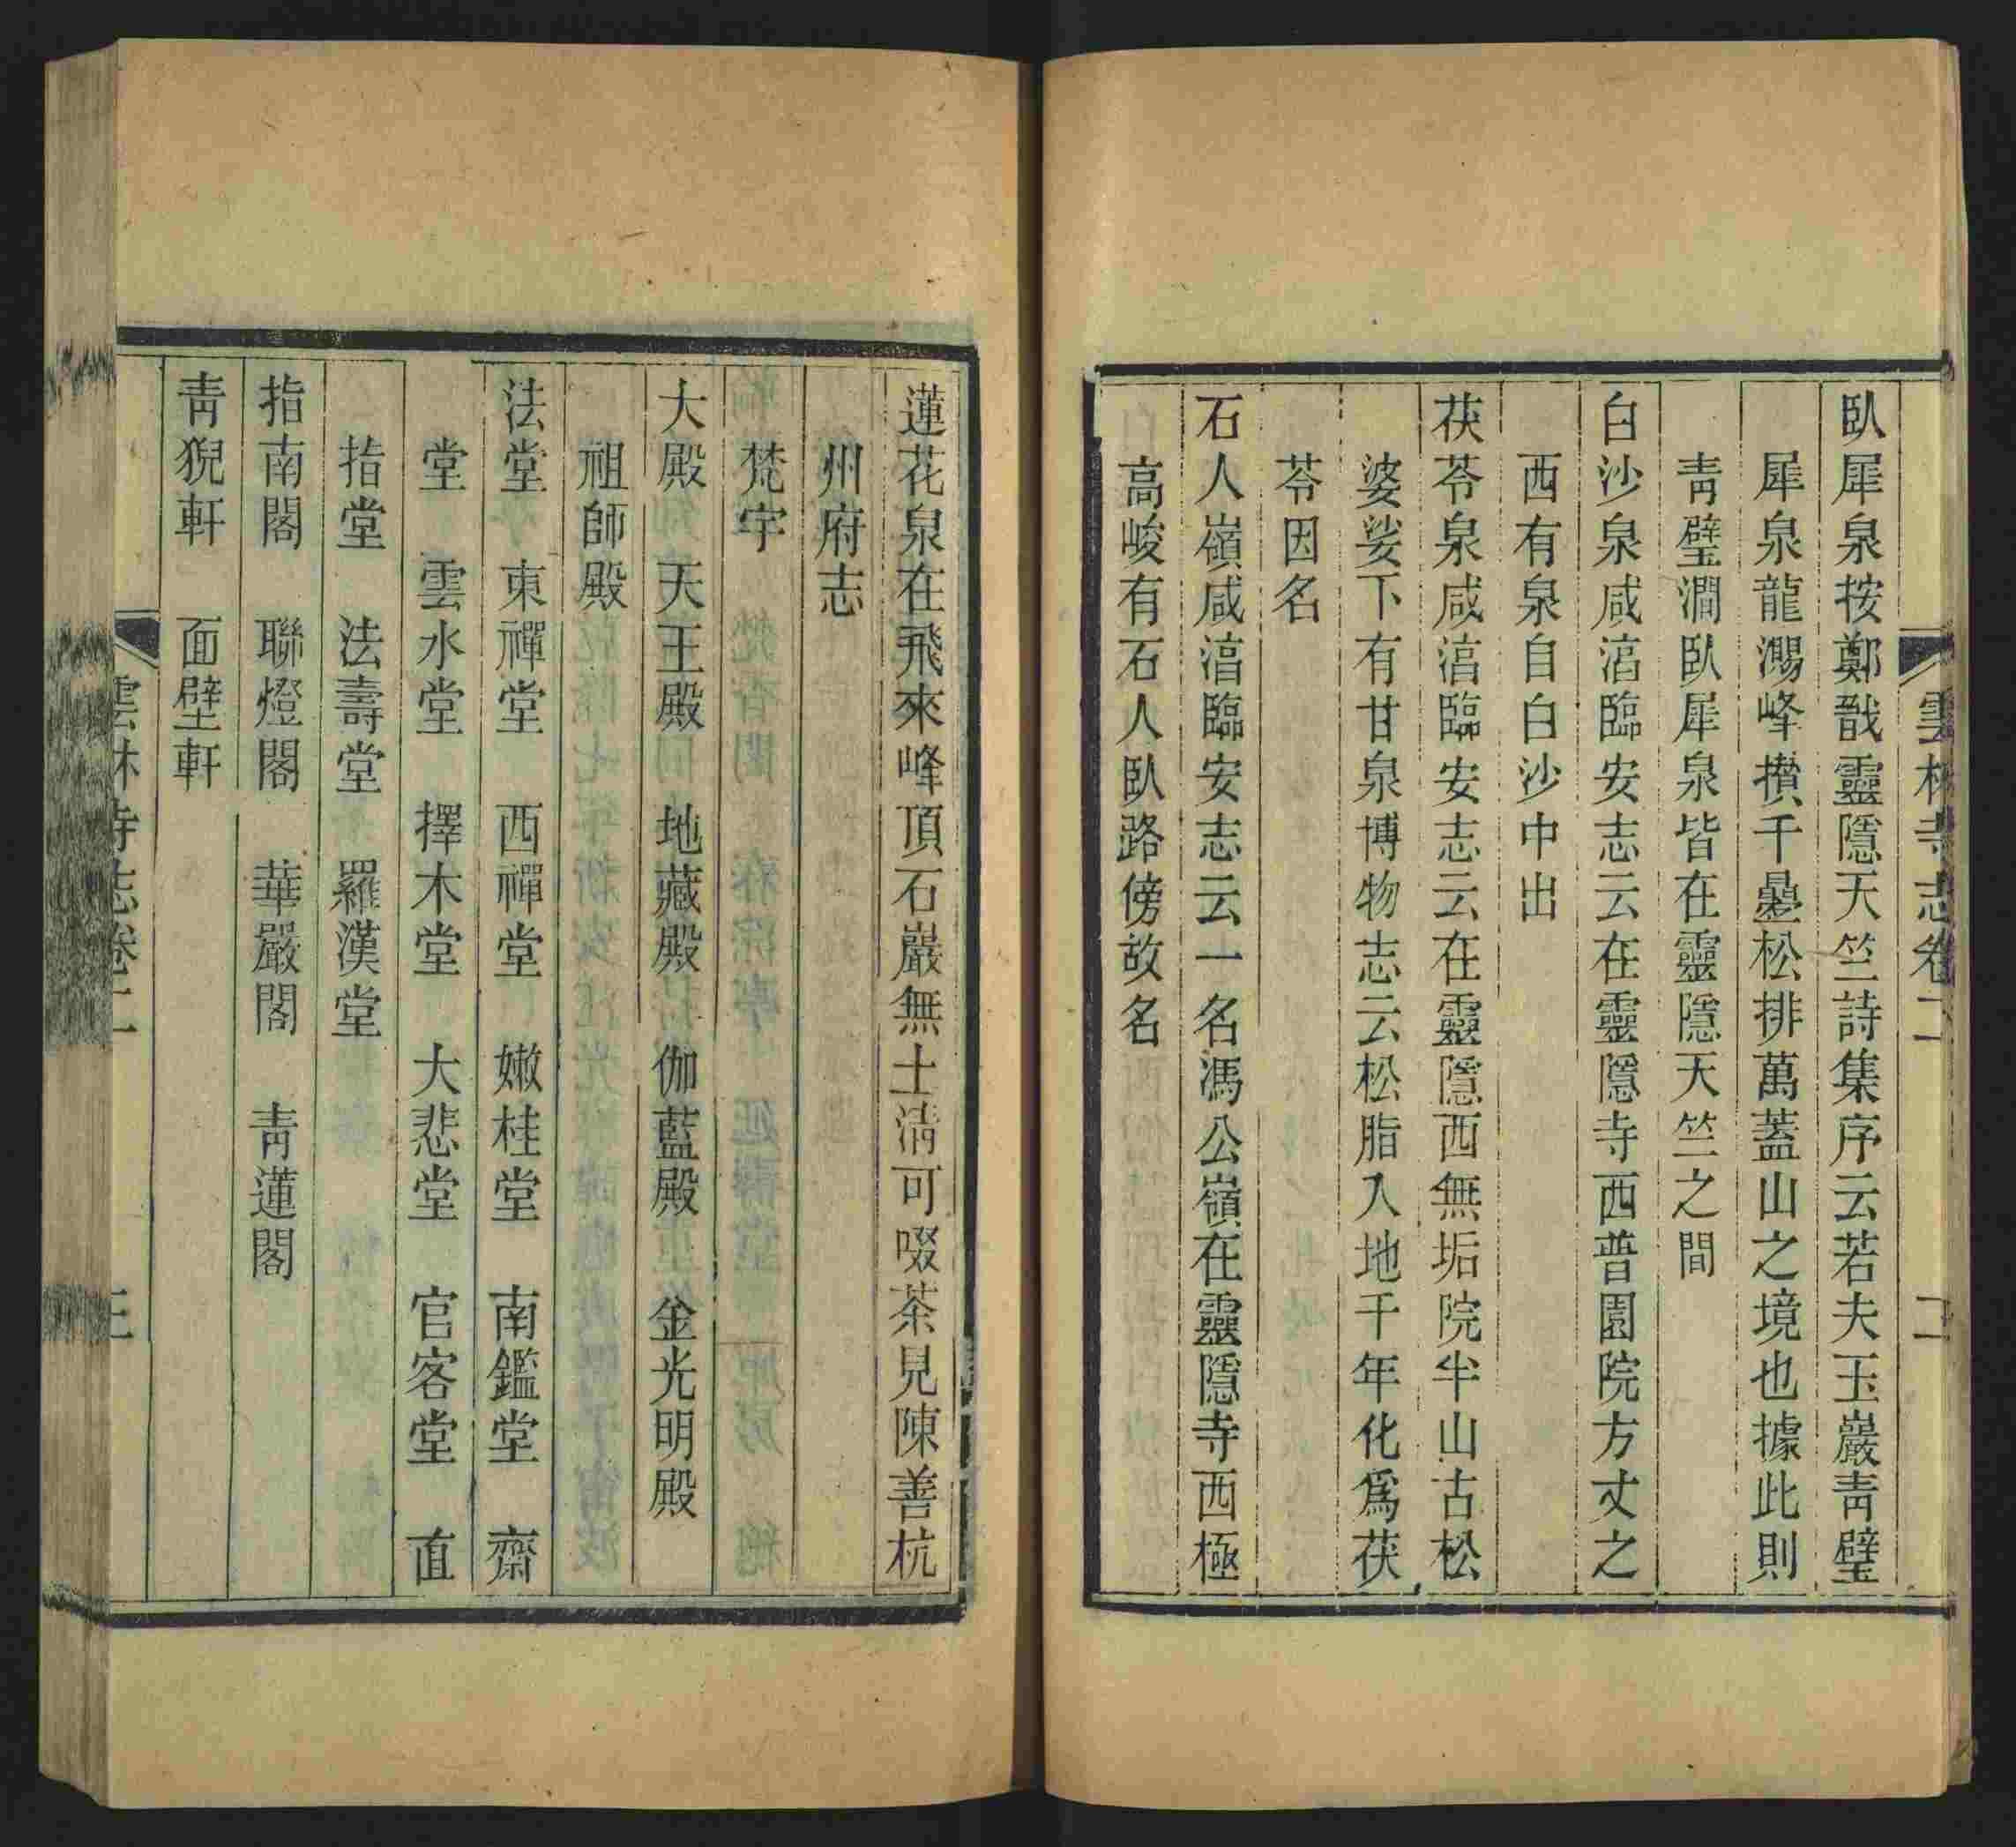 雲林寺志卷二
二
臥犀泉按鄭戩靈隱天竺詩集序云若夫玉巖青璧
犀泉龍鴻峰攢千疊松排萬蓋山之境也據此則
青璧澗臥犀泉皆在靈隱天竺之間
白沙泉咸淳臨安志云在靈隱寺西普園院方丈之
西有泉自白沙中出
茯苓泉咸淳臨安志云在靈隱西無垢院半山古松
婆娑下有甘泉博物志云松脂入地千年化為茯
苓因名
石人嶺咸淳臨安志云一名馮公嶺在靈隱寺西極
高峻有石人臥路傍故名
蓮花泉在飛來峰頂石巖無土清可啜茶見陳善杭
州府志
梵宇
大殿　天王殿　地藏殿　伽藍殿　金光明殿
祖師殿
法堂　東禪堂　西禪堂　嫩桂堂　南鑑堂　齋
堂　雲水堂　擇木堂　大悲堂　官客堂　直
指堂　法壽堂　羅漢堂
指南閣　聯燈閣　華嚴閣　青蓮閣
青猊軒　面壁軒
雲林寺志卷二
三